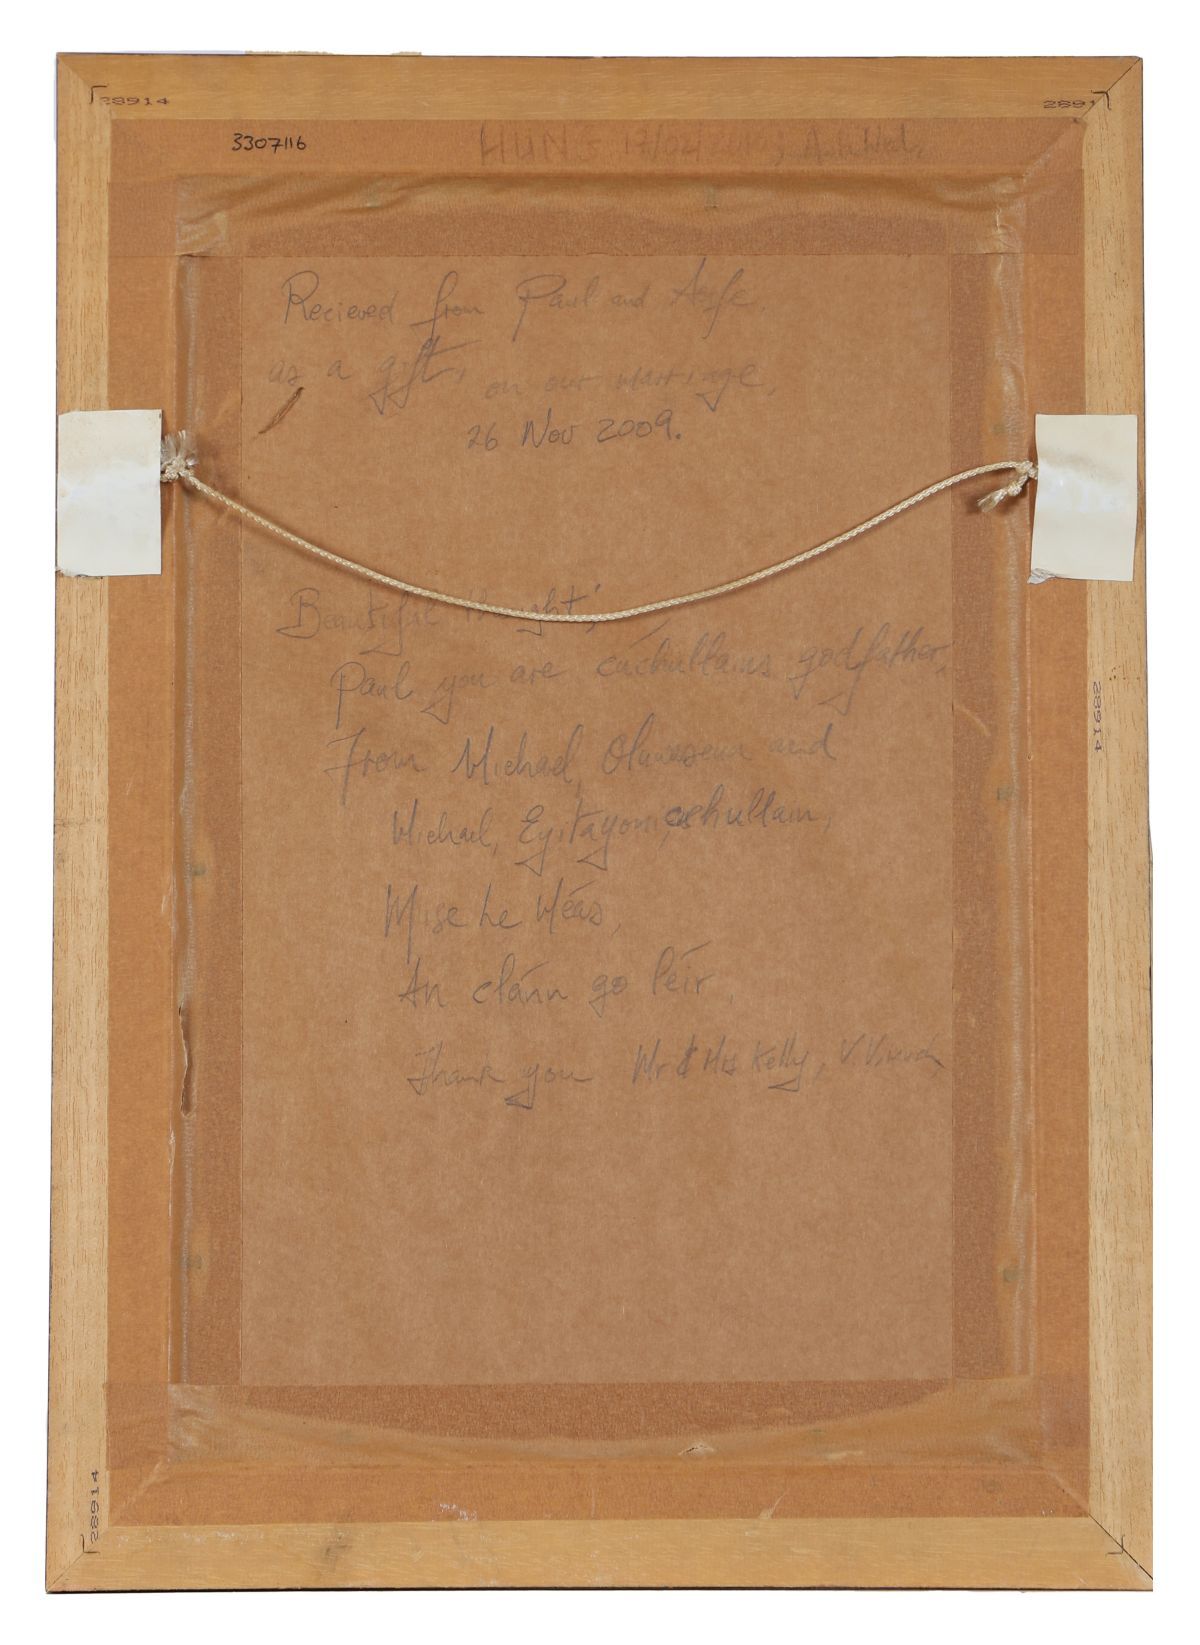 28914
2891
3307116
HUNG
Recieved from Paul and Aoife.
as a gift, on our marriage,
26 Nov 2009.
Beautiful thought;
Paul you are cúchullains godfather,
From Michael, Oluwaseun and
Michael, Eyitayomi, cuchullain,
Mise le Méas,
An clánn go léir,
Thank you Mr & Mrs Kelly,
28914
28914